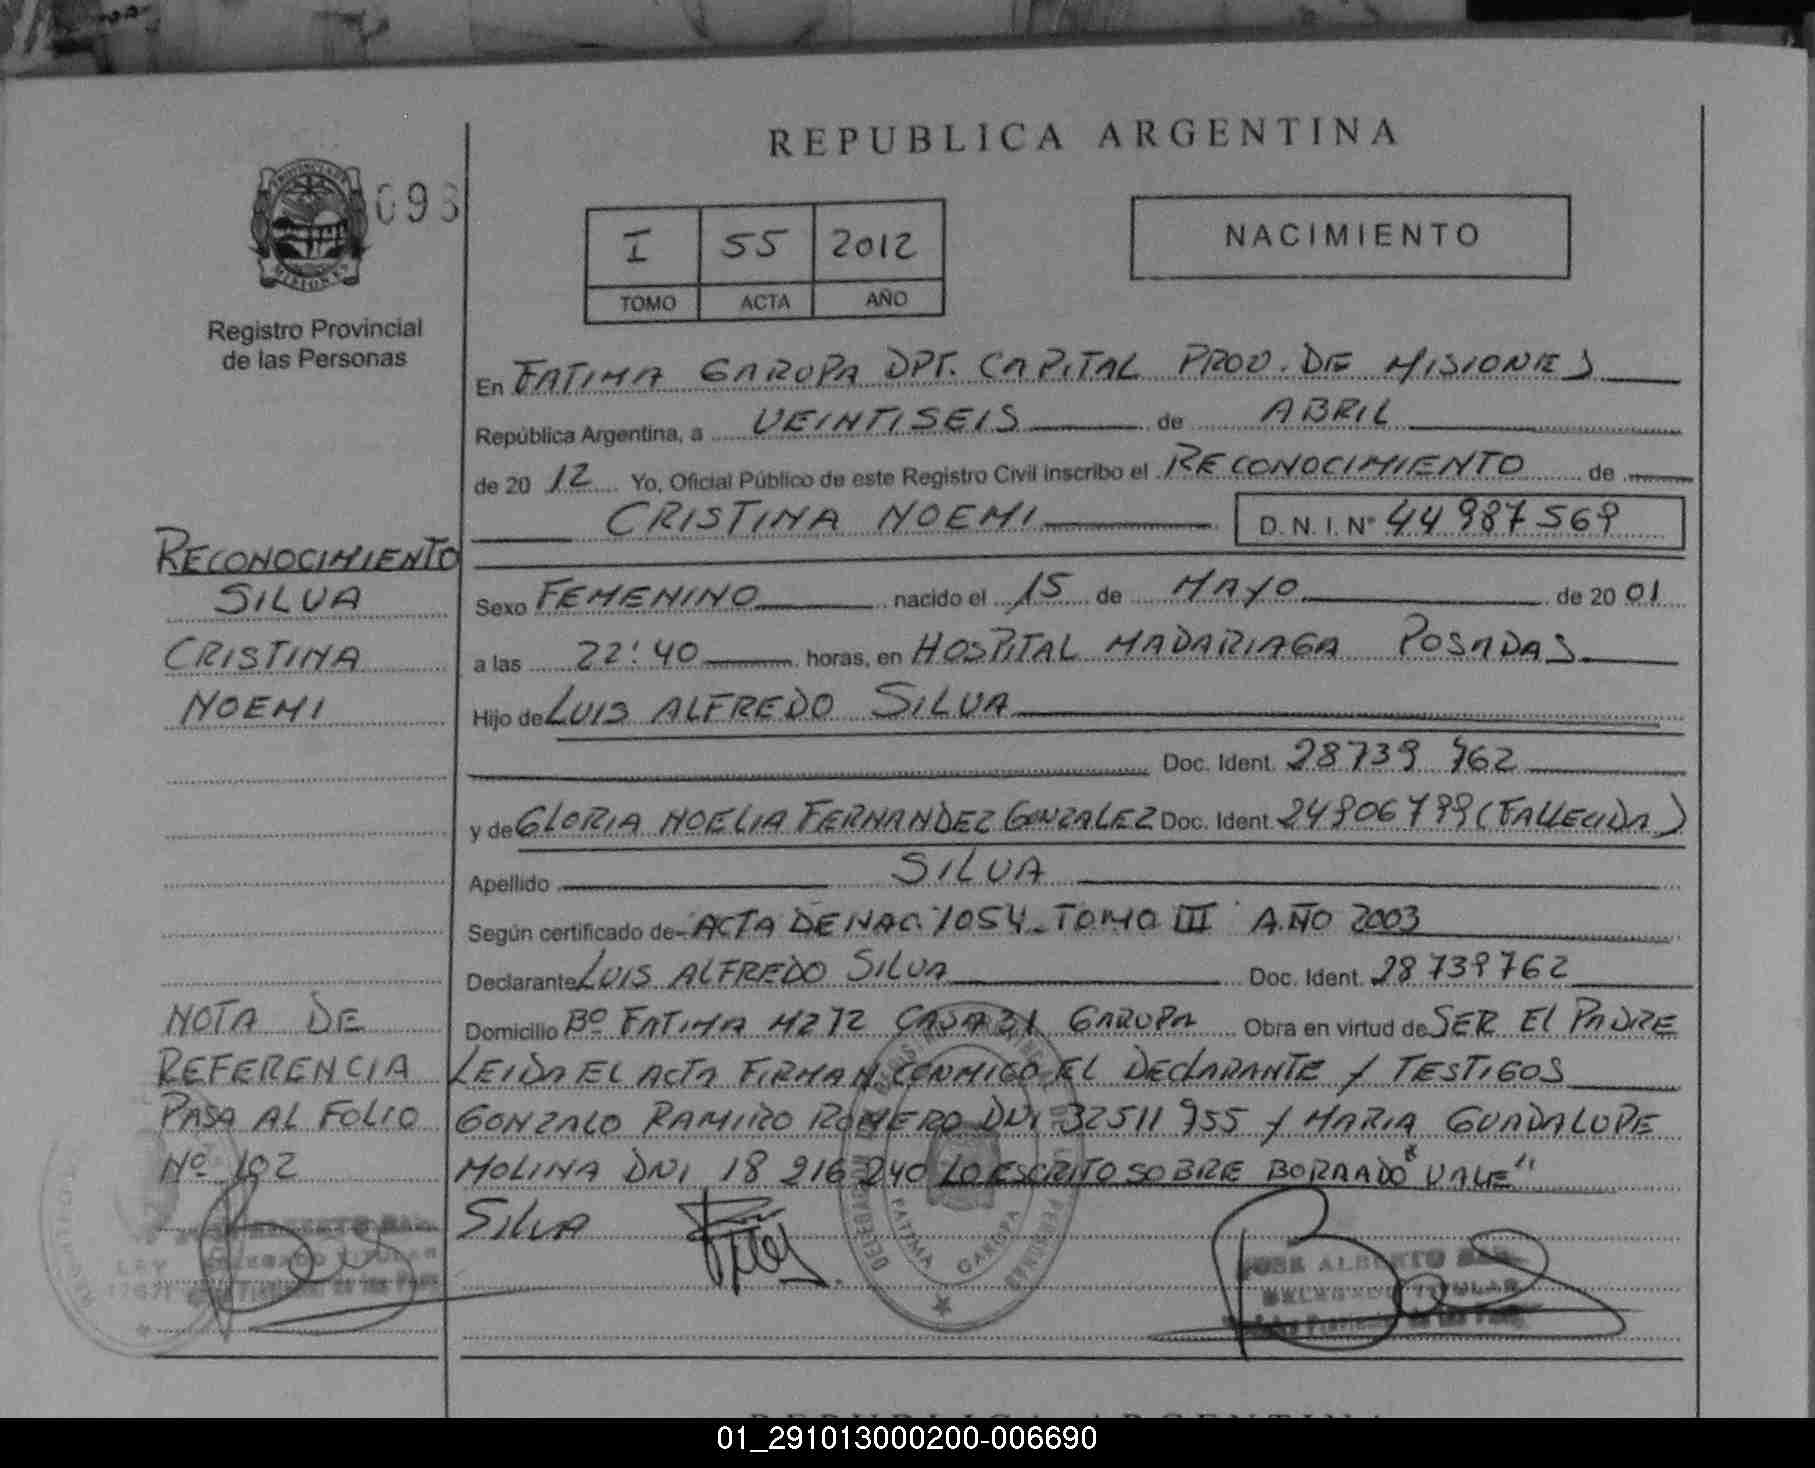 REPUBLICA ARGENTINA
PROVINCIA DE
MISIONES
Registro Provincial
de las Personas
I 55 2012
TOMO ACTA AÑO
NACIMIENTO
En FATIMA GARUPA DPT. CAPITAL PROV. DE MISIONES
República Argentina, a VEINTISEIS de ABRIL
de 20 12 Yo, Oficial Público de este Registro Civil inscribo el RECONOCIMIENTO de
CRISTINA NOEMI D. N. I. Nº 44 987 569
Sexo FEMENINO nacido el 15 de MAYO de 20 01
a las 22:40 horas, en HOSPITAL MADARIAGA POSADAS
Hijo de LUIS ALFREDO SILVA
Doc. Ident. 28739 762
y de GLORIA NOELIA FERNANDEZ GONZALEZ Doc. Ident. 24906799 (FALLECIDA)
Apellido SILVA
Según certificado de ACTA DE NAC. 1054 - TOMO III AÑO 2003
Declarante LUIS ALFREDO SILVA Doc. Ident. 28739762
Domicilio Bº FATIMA MZ 72 CASA 31 GARUPA Obra en virtud de SER El PADRE
LEIDA EL ACTA FIRMAN CONMIGO EL DECLARANTE Y TESTIGOS
GONZALO RAMIRO ROMERO DNI 32511955 Y MARIA GUADALUPE
MOLINA DNI 18 216 240 LO ESCRITO SOBRE BORRADO "VALE"
SILVA
RECONOCIMIENTO
SILVA
CRISTINA
NOEMI
NOTA DE
REFERENCIA
PASA AL FOLIO
Nº 102
FATIMA GARUPA
JOSE ALBERTO
DELEGADO TITULAR
LEY
DELEGADO TITULAR
REPUBLICA ARGENTINA
01_291013000200-006690